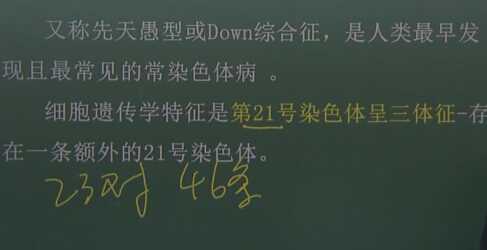 又称先天愚型或Down综合征，是人类最早发
现且最常见的常染色体病 。
细胞遗传学特征是第21号染色体呈三体征-存
在一条额外的21号染色体。
23对 46条